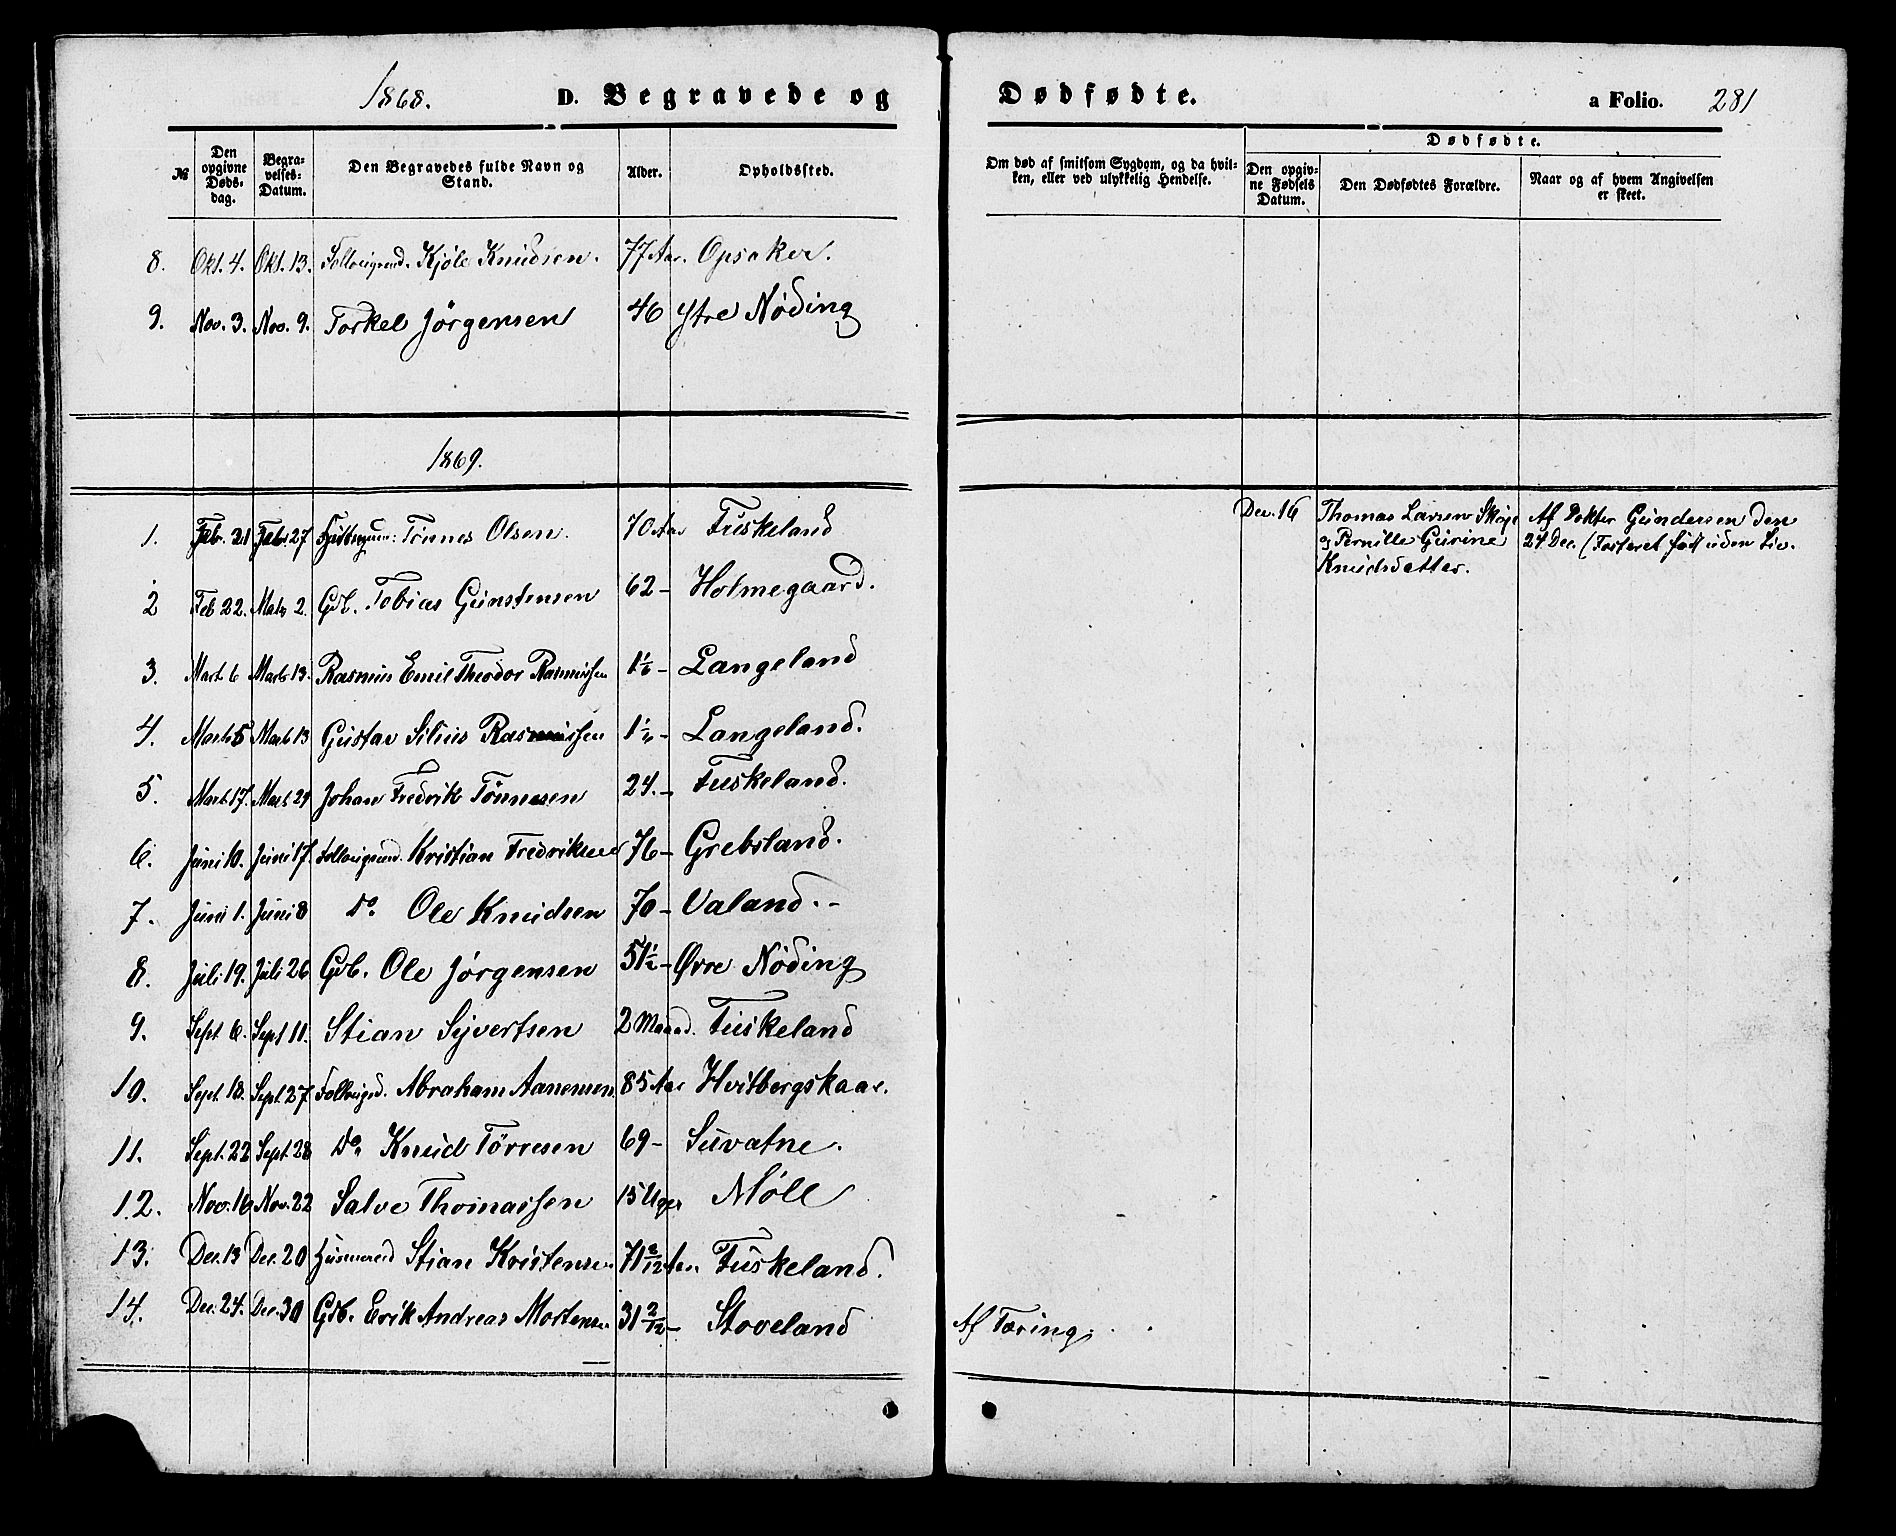 1868. D. Begravede og Dødfødte. a Folio. 281
№ Den opgivne Døds-dag. Begra-velses-Datum. Den Begravedes fulde Navn og Stand. Alder. Opholdssted. Om død af smitsom Sygdom, og da hvil-ken, eller ved ulykkelig Hendelse. Dødfødte.
Den opgiv-ne Fødsels Datum. Den Dødfødtes Forældre. Naar og af hvem Angivelsen er skeet.
8. Okt. 4. Okt. 13. Kjøle Knudsen. 77 Aar. Opsaker.
9. Nov. 3. Nov. 9. Torkel Jörgensen 46 Ytre Nöding
1869.
1. Febr. 21 Febr. 27 Tönnes Olsen. 70 Aar Tuskeland
Dec. 16 Thomas Larsen
& Pernille Gurine
Knudsdatter.
Af Doktor Gundersen den
24 Dec. (Fosteret født uden Liv.
2 Feb 22. Mats 2. Gdb. Tobias Gunstensen 62 - Holmegaard.
3. Mart. 6 Marts 13. Rasmus Emil Theodor Rasmussen Langeland
4. Marts 5 Mart 13 Gustav Silius Rasmussen Langeland.
5. Mart. 17. Mart. 24 Johan Fredrik Tönnesen 24. - Tuskeland.
6. Juni 10. Juni 17. Kristian Fredriksen 76 - Grebsland.
7. Juni 1. Juni 8 Do. Ole Knudsen 70 - Valand. -
8. Juli 19. Juli 26 Gdb. Ole Jörgensen 51½ - Øvre Nöding
9. Sept 6. Sept 11. Stian Syvertsen 2 Maaned. Tuskeland
10. Sept. 18. Sept. 27 Abraham Aanensen 85 Aar Hvitbergskaar.
11. Sept. 22 Sept. 28 Do. Knud Törresen 69 - Suvatne.
12. Nov. 16 Nov. 22 Salve Thomassen 15 Uger Möll
13. Dec. 13 Dec. 20 Husmand Stian Kristensen 71 2/12 Aar. Tuskeland.
14. Dec. 24. Dec. 30 Gdb. Erik Andreas Mortensen 31 2/12 - Stoveland Af Tæring.